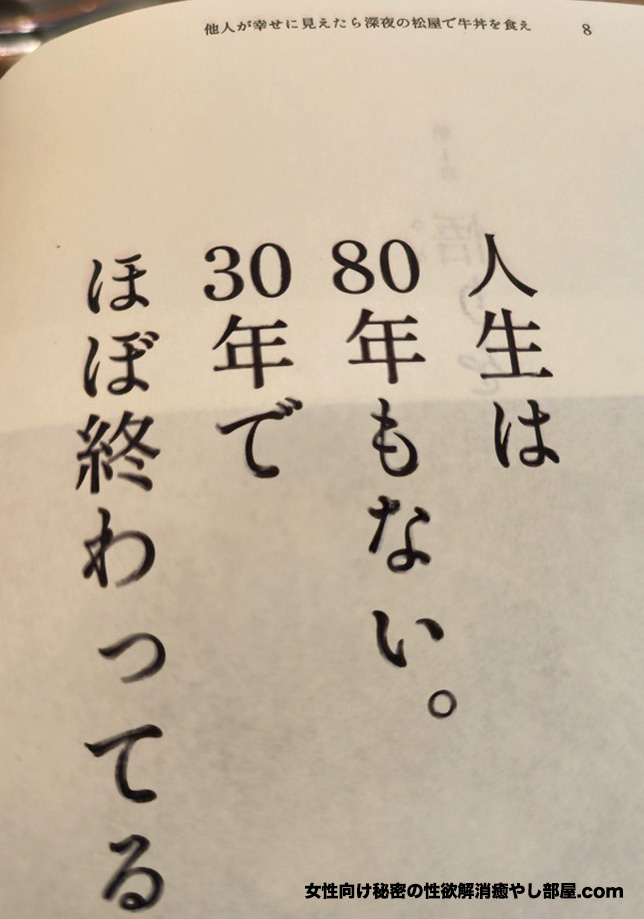 他人が幸せに見えたら深夜の松屋で牛丼を食え 8
人生は
80年もない。
30年で
ほぼ終わってる
女性向け秘密の性欲解消癒やし部屋.com